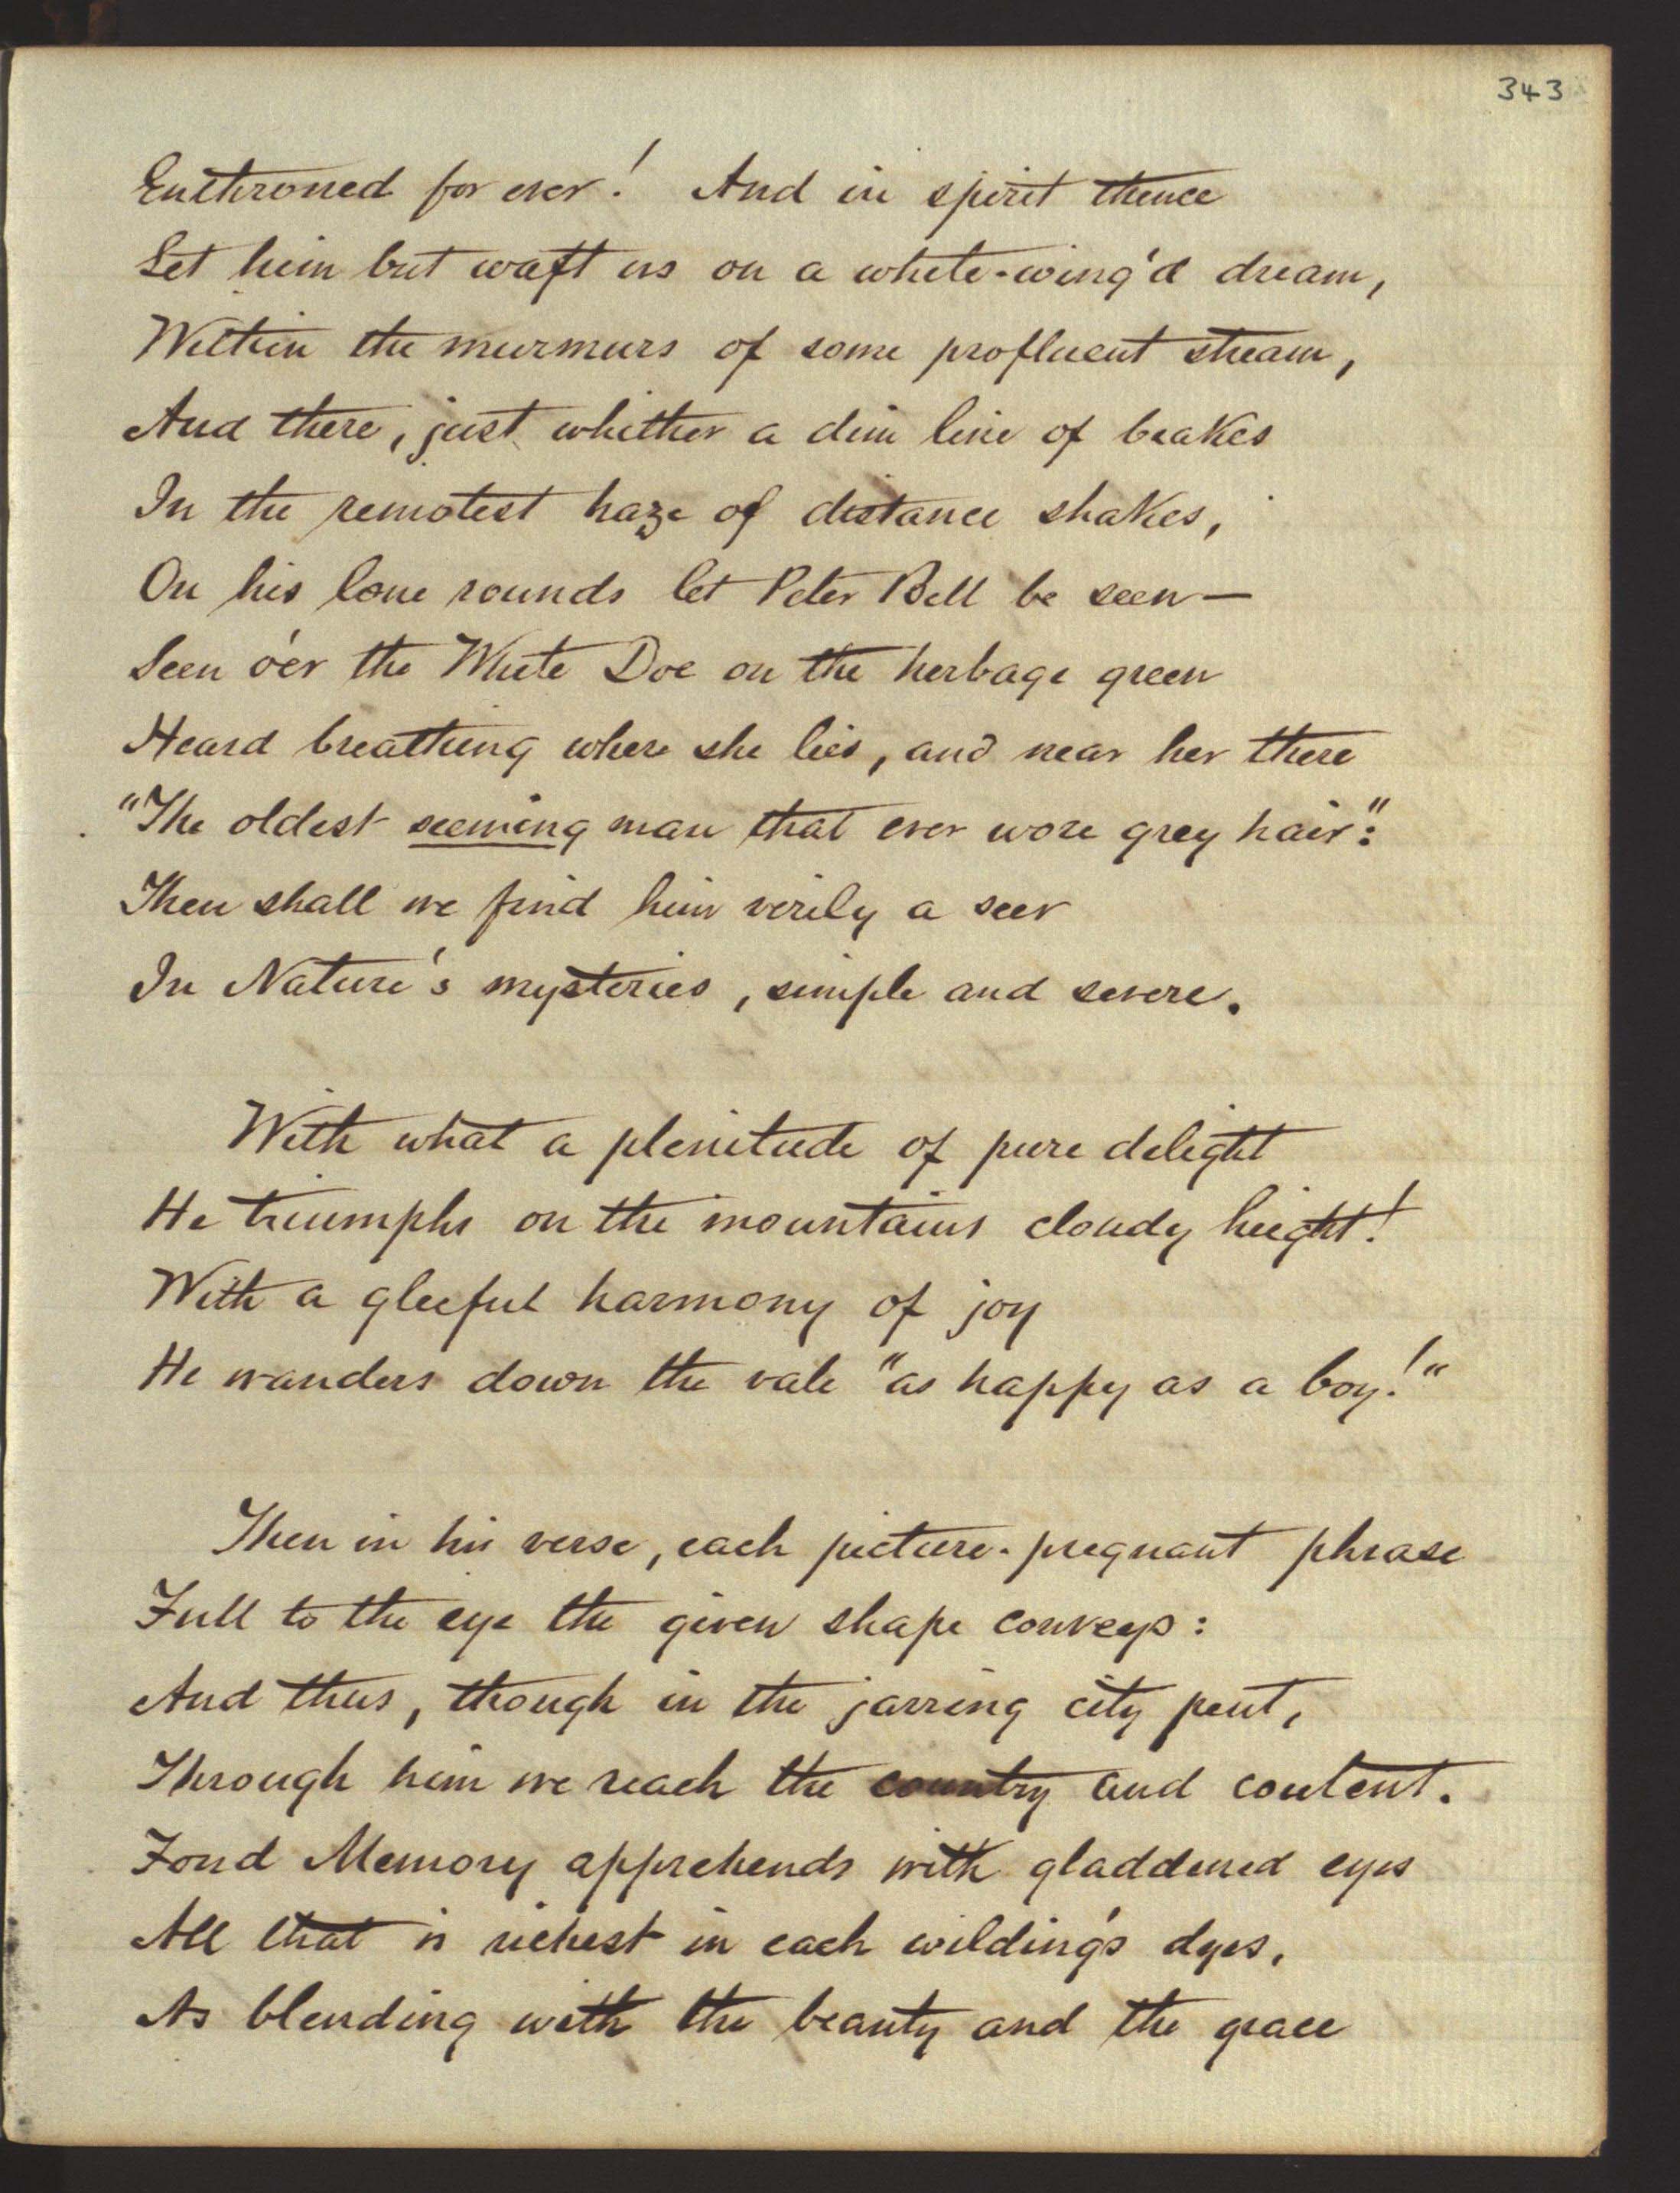 343
Enthroned for ever! And in spirit thence
Let him but waft us on a white-wing'd dream,
Within the murmurs of some profluent stream,
And there, just whither a dim line of brakes
In the remotest haze of distance shakes,
On his lone rounds let Peter Bell be seen—
Seen o'er the White Doe on the herbage green
Heard breathing where she lies, and near her there
"The oldest seeming man that ever wore grey hair":
Then shall we find him verily a seer
In Nature's mysteries, simple and severe.
With what a plenitude of pure delight
He triumphs on the mountains cloudy height!
With a gleeful harmony of joy
He wanders down the vale "as happy as a boy!"
Then in his verse, each picture-pregnant phrase
Full to the eye the given shape conveys:
And thus, though in the jarring city pent,
Through him we reach the country and content.
Fond Memory apprehends with gladdened eyes
All that is richest in each wilding's dyes,
As blending with the beauty and the grace